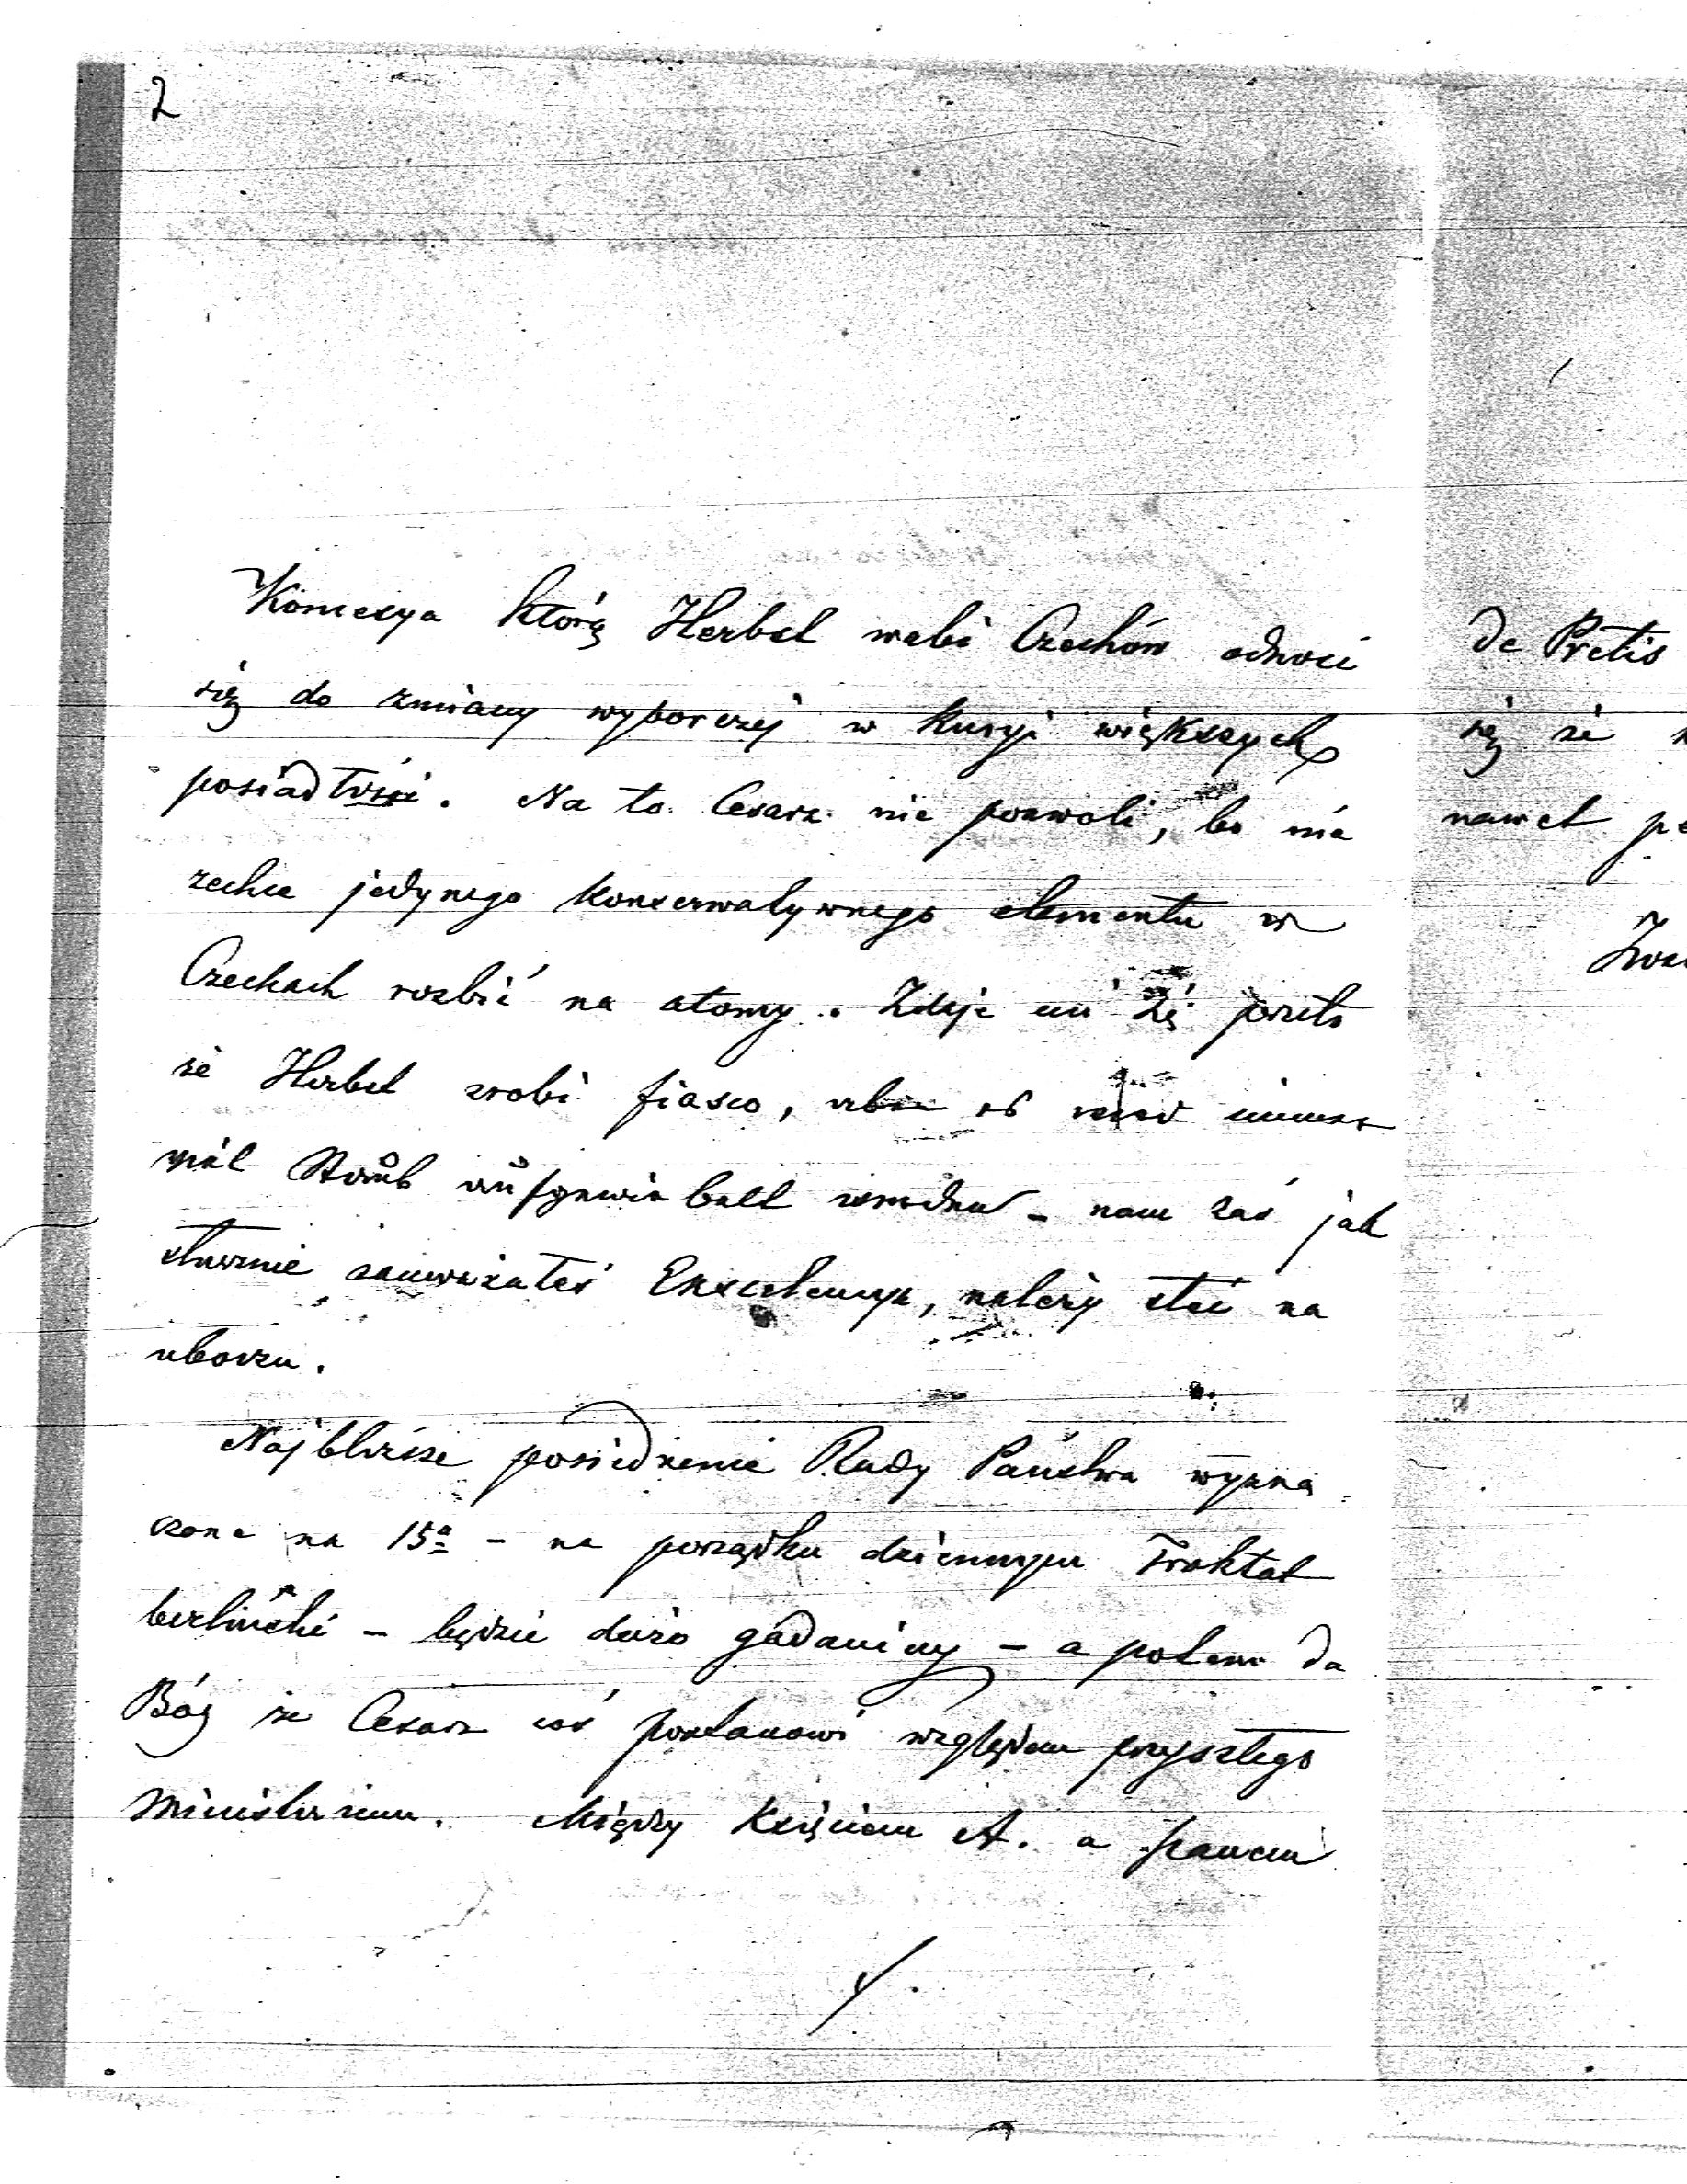 2
Koncesya którą Herbst wabi Czechów odnosi
się do zmiany wyborczej w Kuryi większych
posiadłości. Na to Cesarz nie pozwoli, bo nie
zechce jedynego konserwatywnego elementu w
Czechach rozbić na atomy. Zdaje mi się przeto
że Herbst zrobi fiasco, aber es wird immer
viel Staub aufgewirbelt werden – nam zaś jak
słusznie zauważałeś Excelencya, należy stać na
uboczu.
Najbliższe posiedzenie Rady Państwa wyzna
czone na 15ª – na porządku dziennym Traktat
berliński – będzie dużo gadaniny – a potem da
Bóg że Cesarz coś postanowi względem przyszłego
Ministerium. Między Księciem A. a panem
/.
de Pretis
się że
nawet